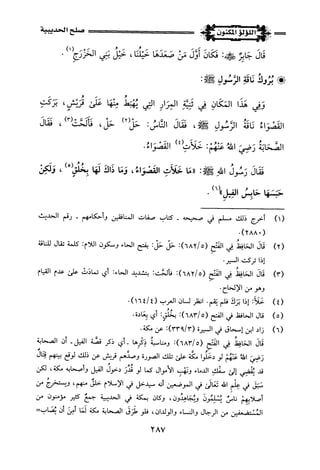 اللؤلؤ المكنون
صلح الحديبية
قَالَ جَابِرٌ ﷺ: فَكَانَ أَوَّلَ مَنْ صَعَدَهَا خَيْلُنَا، خَيْلُ بَنِي الخَزْرَجِ(١).
* بُرُوكُ نَاقَةِ الرَّسُولِ ﷺ:
وَفِي هَذَا المَكَانِ فِي ثَنِيَّةِ المِرَارِ التِي يُهْبَطُ مِنْهَا عَلَى قُرَيْشٍ، بَرَكَتِ
القَصْوَاءُ نَاقَةُ الرَّسُولِ ﷺ، فَقَالَ النَّاسُ: حَلْ(٢) حَلْ، فَأَلَحَّتْ(٣)، فَقَالَ
الصَّحَابَةُ رَضِيَ اللهُ عَنْهُمْ: خَلَأَتِ(٤) القَصْوَاءُ.
فَقَالَ رَسُولُ اللهِ ﷺ: «مَا خَلَأَتِ القَصْوَاءُ، وَمَا ذَاكَ لَهَا بِخُلُقٍ(٥)، وَلَكِنْ
حَبَسَهَا حَابِسُ الفِيلِ»(٦).
(١) أخرج ذلك مسلم في صحيحه ـ كتاب صفات المنافقين وأحكامهم ـ رقم الحديث
(٢٨٨٠).
(٢) قَالَ الحَافِظُ فِي الفَتْحِ (٦٨٢/٥): حَلْ حَلْ: بفتح الحاء وسكون اللام: كلمة تقال للناقة
إذا تركت السير.
(٣) قَالَ الحَافِظُ فِي الفَتْحِ (٦٨٢/٥): فألحَّت: بتشديد الحاء: أي تمادَتْ على عدم القيام
وهو من الإلحاح.
(٤) خَلَأَ: إذا بَرَكَ فلم يقم. انظر لسان العرب (١٦٤/٤).
(٥) قال الحافظ في الفتح (٦٨٣/٥): بِخُلُقٍ: أي بِعَادة.
(٦) زاد ابن إسحاق في السيرة (٣٣٩/٣): عن مكة.
قَالَ الحَافِظُ فِي الفَتْحِ (٦٨٣/٥): ومناسبةُ ذِكْرِها ـ أي ذكر قصَّة الفيل ـ أن الصحابة
رَضِيَ اللهُ عَنْهُمْ لو دخَلُوا مكَّة على تلك الصورة وصدَّهم قريش عن ذلك لوقع بينهم قِتَالٌ
قد يُفْضِي إلى سَفْكِ الدماء ونَهْبِ الأموال كما لو قُدِّر دخولُ الفيل وأصحابه مكة، لكن
سَبَقَ في عِلْمِ اللهِ تَعَالَى في الموضعين أنه سيدخل في الإسلام خلقٌ منهم، ويستخرجُ من
أصلابِهِمْ ناسٌ يُسْلِمُونَ ويُجَاهِدُون، وكان بمكة في الحديبية جمعٌ كثير مؤمنون من
المُسْتَضعفين من الرجال والنساء والولدان، فلو طَرَقَ الصحابة مكة لَمَا أمِنَ أن يُصَابَ=
٢٨٧